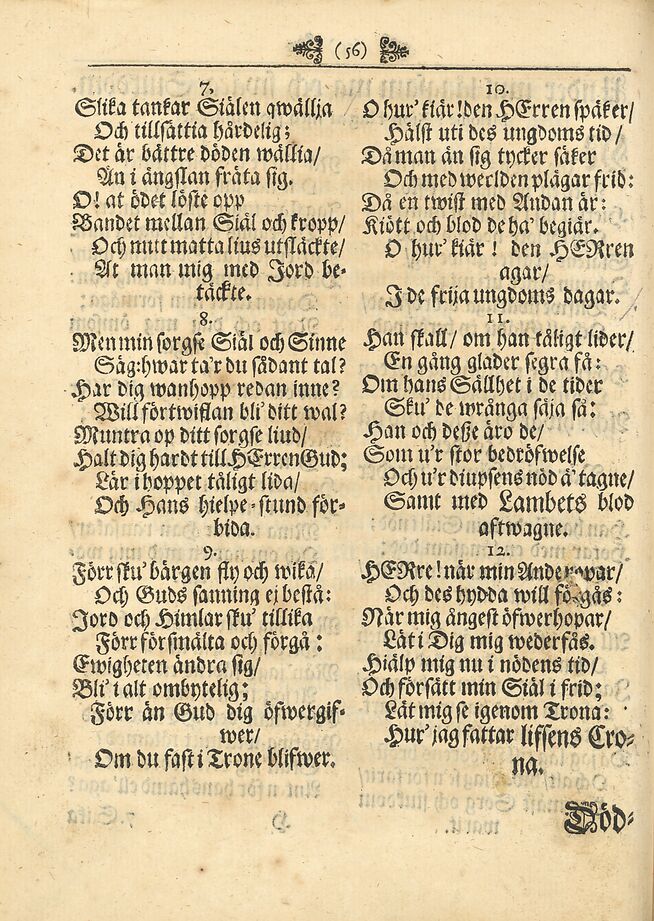 (56)
7.
Slika tankar Siälen qwällia
Och tillsättia härdelig;
Det är bättre döden wällia/
Än i ängslan fräta sig.
O! at ödet löste opp
Bandet mellan Siäl och kropp/
Och mitt matta lius utsläckte/
At man mig med Jord be-
täckte.
8.
Men min sorgse Siäl och Sinne
Säg: hwar ta'r du sådant tal?
Har dig wanhopp redan inne?
Will förtwiflan bli' ditt wal?
Muntra op ditt sorgse liud/
Halt dig hardt till HErren Gud;
Lär i hoppet tåligt lida/
Och Hans hielpe-stund för-
bida.
9.
Förr sku' bärgen fly och wika/
Och Guds sanning ej bestå:
Jord och Himlar sku' tillika
Förr försmälta och förgå:
Ewigheten ändra sig/
Bli' i alt ombytelig;
Förr än Gud dig öfwergif-
wer/
Om du fast i Trone blifwer.
10.
O hur' kiär! den HErren späker/
Hälst uti des ungdoms tid/
Då man än sig tycker säker
Och med werlden plägar frid:
Då en twist med Andan är:
Kiött och blod de ha' begiär.
O hur' kiär! den HERren
agar/
I de frija ungdoms dagar.
11.
Han skall/ om han tåligt lider/
En gång glader segra få:
Om hans Sällhet i de tider
Sku' de wrånga säja så:
Han och deße äro de/
Som u'r stor bedröfwelse
Och u'r diupsens nöd ä' tagne/
Samt med Lambets blod
aftwagne.
12.
HERre! när min Ande
Och des hydda will förgås:
När mig ångest öfwerhopar/
Lät i Dig mig wederfås.
Hiälp mig nu i nödens tid/
Och försätt min Siäl i frid;
Låt mig se igenom Trona:
Hur' jag fattar lifsens Cro-
na.
Död-